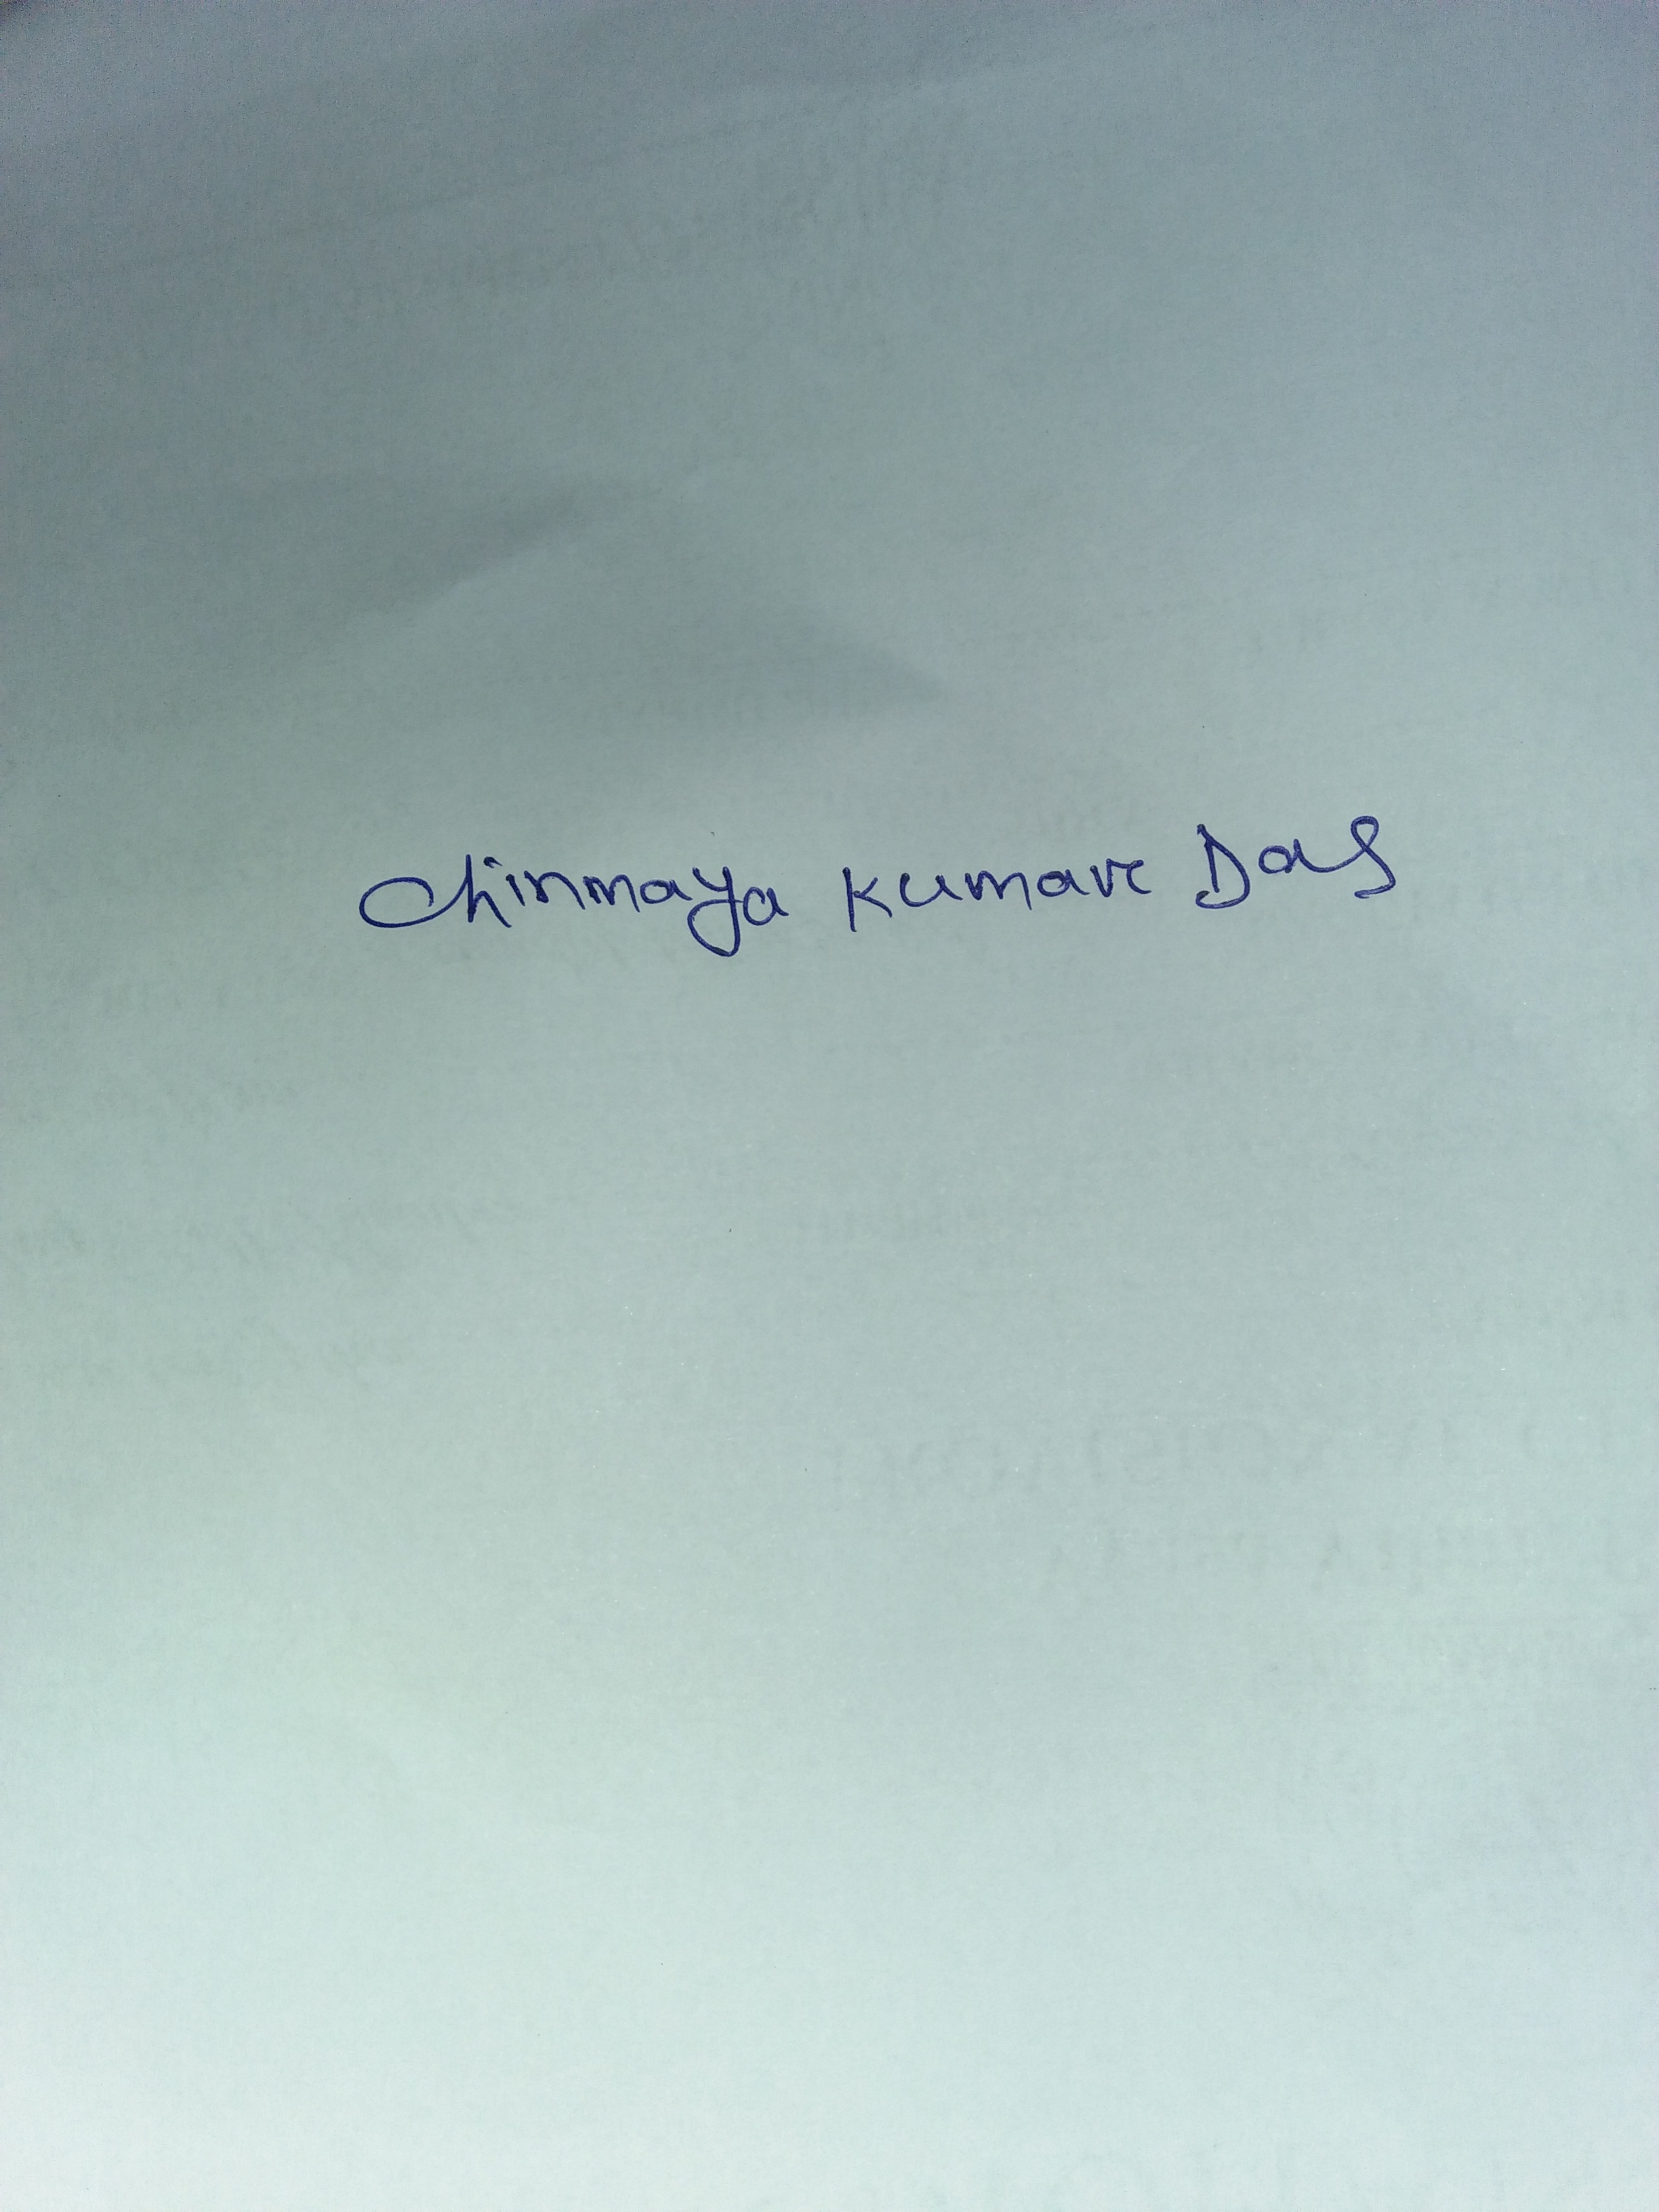 Chinmaya Kumar Das